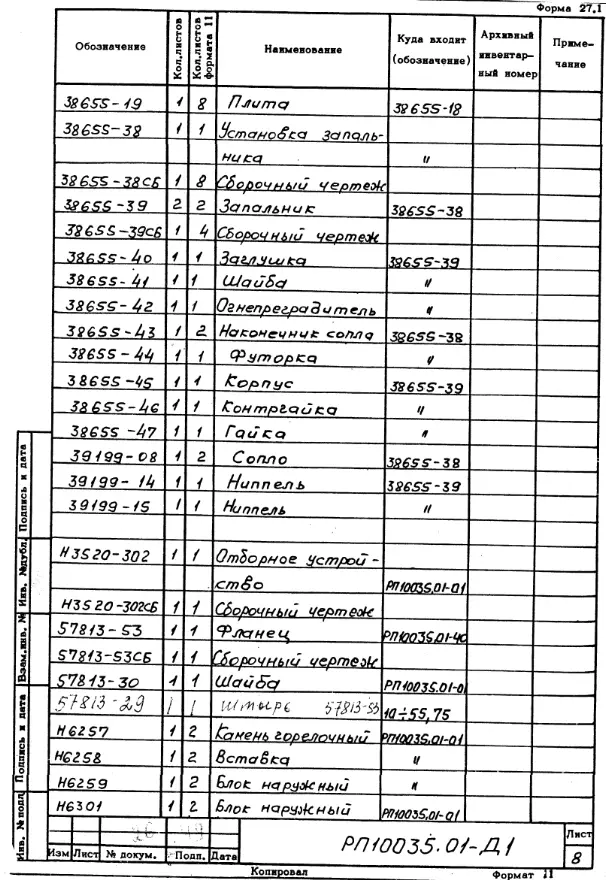 Форма 27.1
Обозначение Кол.листов Кол.листов формата 11 Наименование Куда входит (обозначение) Архивный инвентар- ный номер Приме- чание
38655-19 1 8 Плита 38655-18
38655-38 1 1 Установка запаль-
ника "
38655-38СБ 1 8 Сборочный чертеж
38655-39 2 2 Запальник 38655-38
38655-39СБ 1 4 Сборочный чертеж
38655-40 1 1 Заглушка 38655-39
38655-41 1 1 Шайба "
38655-42 1 1 Огнепреградитель "
38655-43 1 2 Наконечник сопла 38655-38
38655-44 1 1 Футорка "
38655-45 1 1 Корпус 38655-39
38655-46 1 1 Контргайка "
38655-47 1 1 Гайка "
39199-08 1 2 Сопло 38655-38
39199-14 1 1 Ниппель 38655-39
39199-15 1 1 Ниппель "
Н3520-302 1 1 Отборное устрой-
ство РП10035.01-01
Н3520-302СБ 1 1 Сборочный чертеж
57813-53 1 1 Фланец РП10035.01-40
57813-53СБ 1 1 Сборочный чертеж
57813-30 1 1 Шайба РП10035.01-0
57813-29 1 1 штырь 57813-53 10÷55,75
Н6257 1 2 Камень горелочный РП10035.01-01
Н6258 1 2 Вставка "
Н6259 1 2 Блок наружный "
Н6301 1 2 Блок наружный РП10035.01-01
Подпись и дата
Инв. №дубл.
Взам.инв. №
Подпись и дата
Инв. №подл
Изм Лист № докум. Подп. Дата
РП10035.01-Д1
Лист
8
Копировал Формат 11